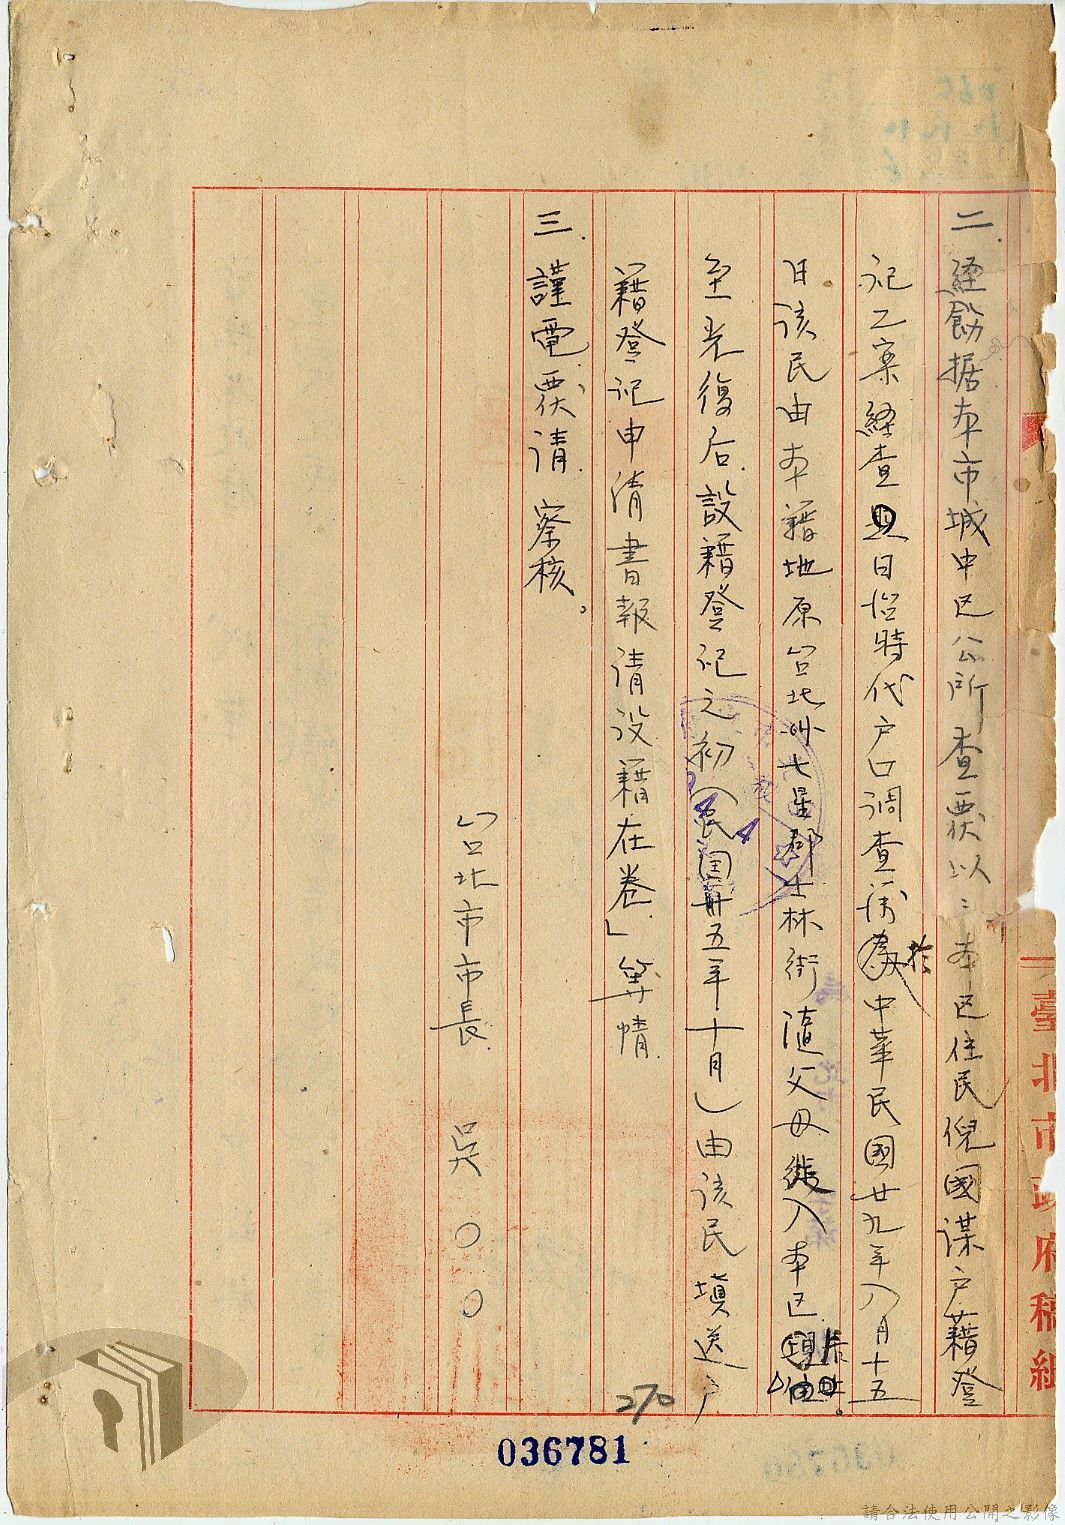 二、経飭据本市城中区公所查覆以：「本区住民倪國謀户籍登
記乙案経查日治時代户口調查簿於中華民國廿九年八月十五
日该民由本籍地原台北州七星郡士林街随父母徙入本区居住。
至光復后設籍登记之初（民国卅五年十月）由该民填送户
籍登记申请書報请设籍在卷」等情
三、謹電覆请 察核。
台北市市長 吴○○
臺北市政府稿紙
270
036781
請合法使用公開之影像